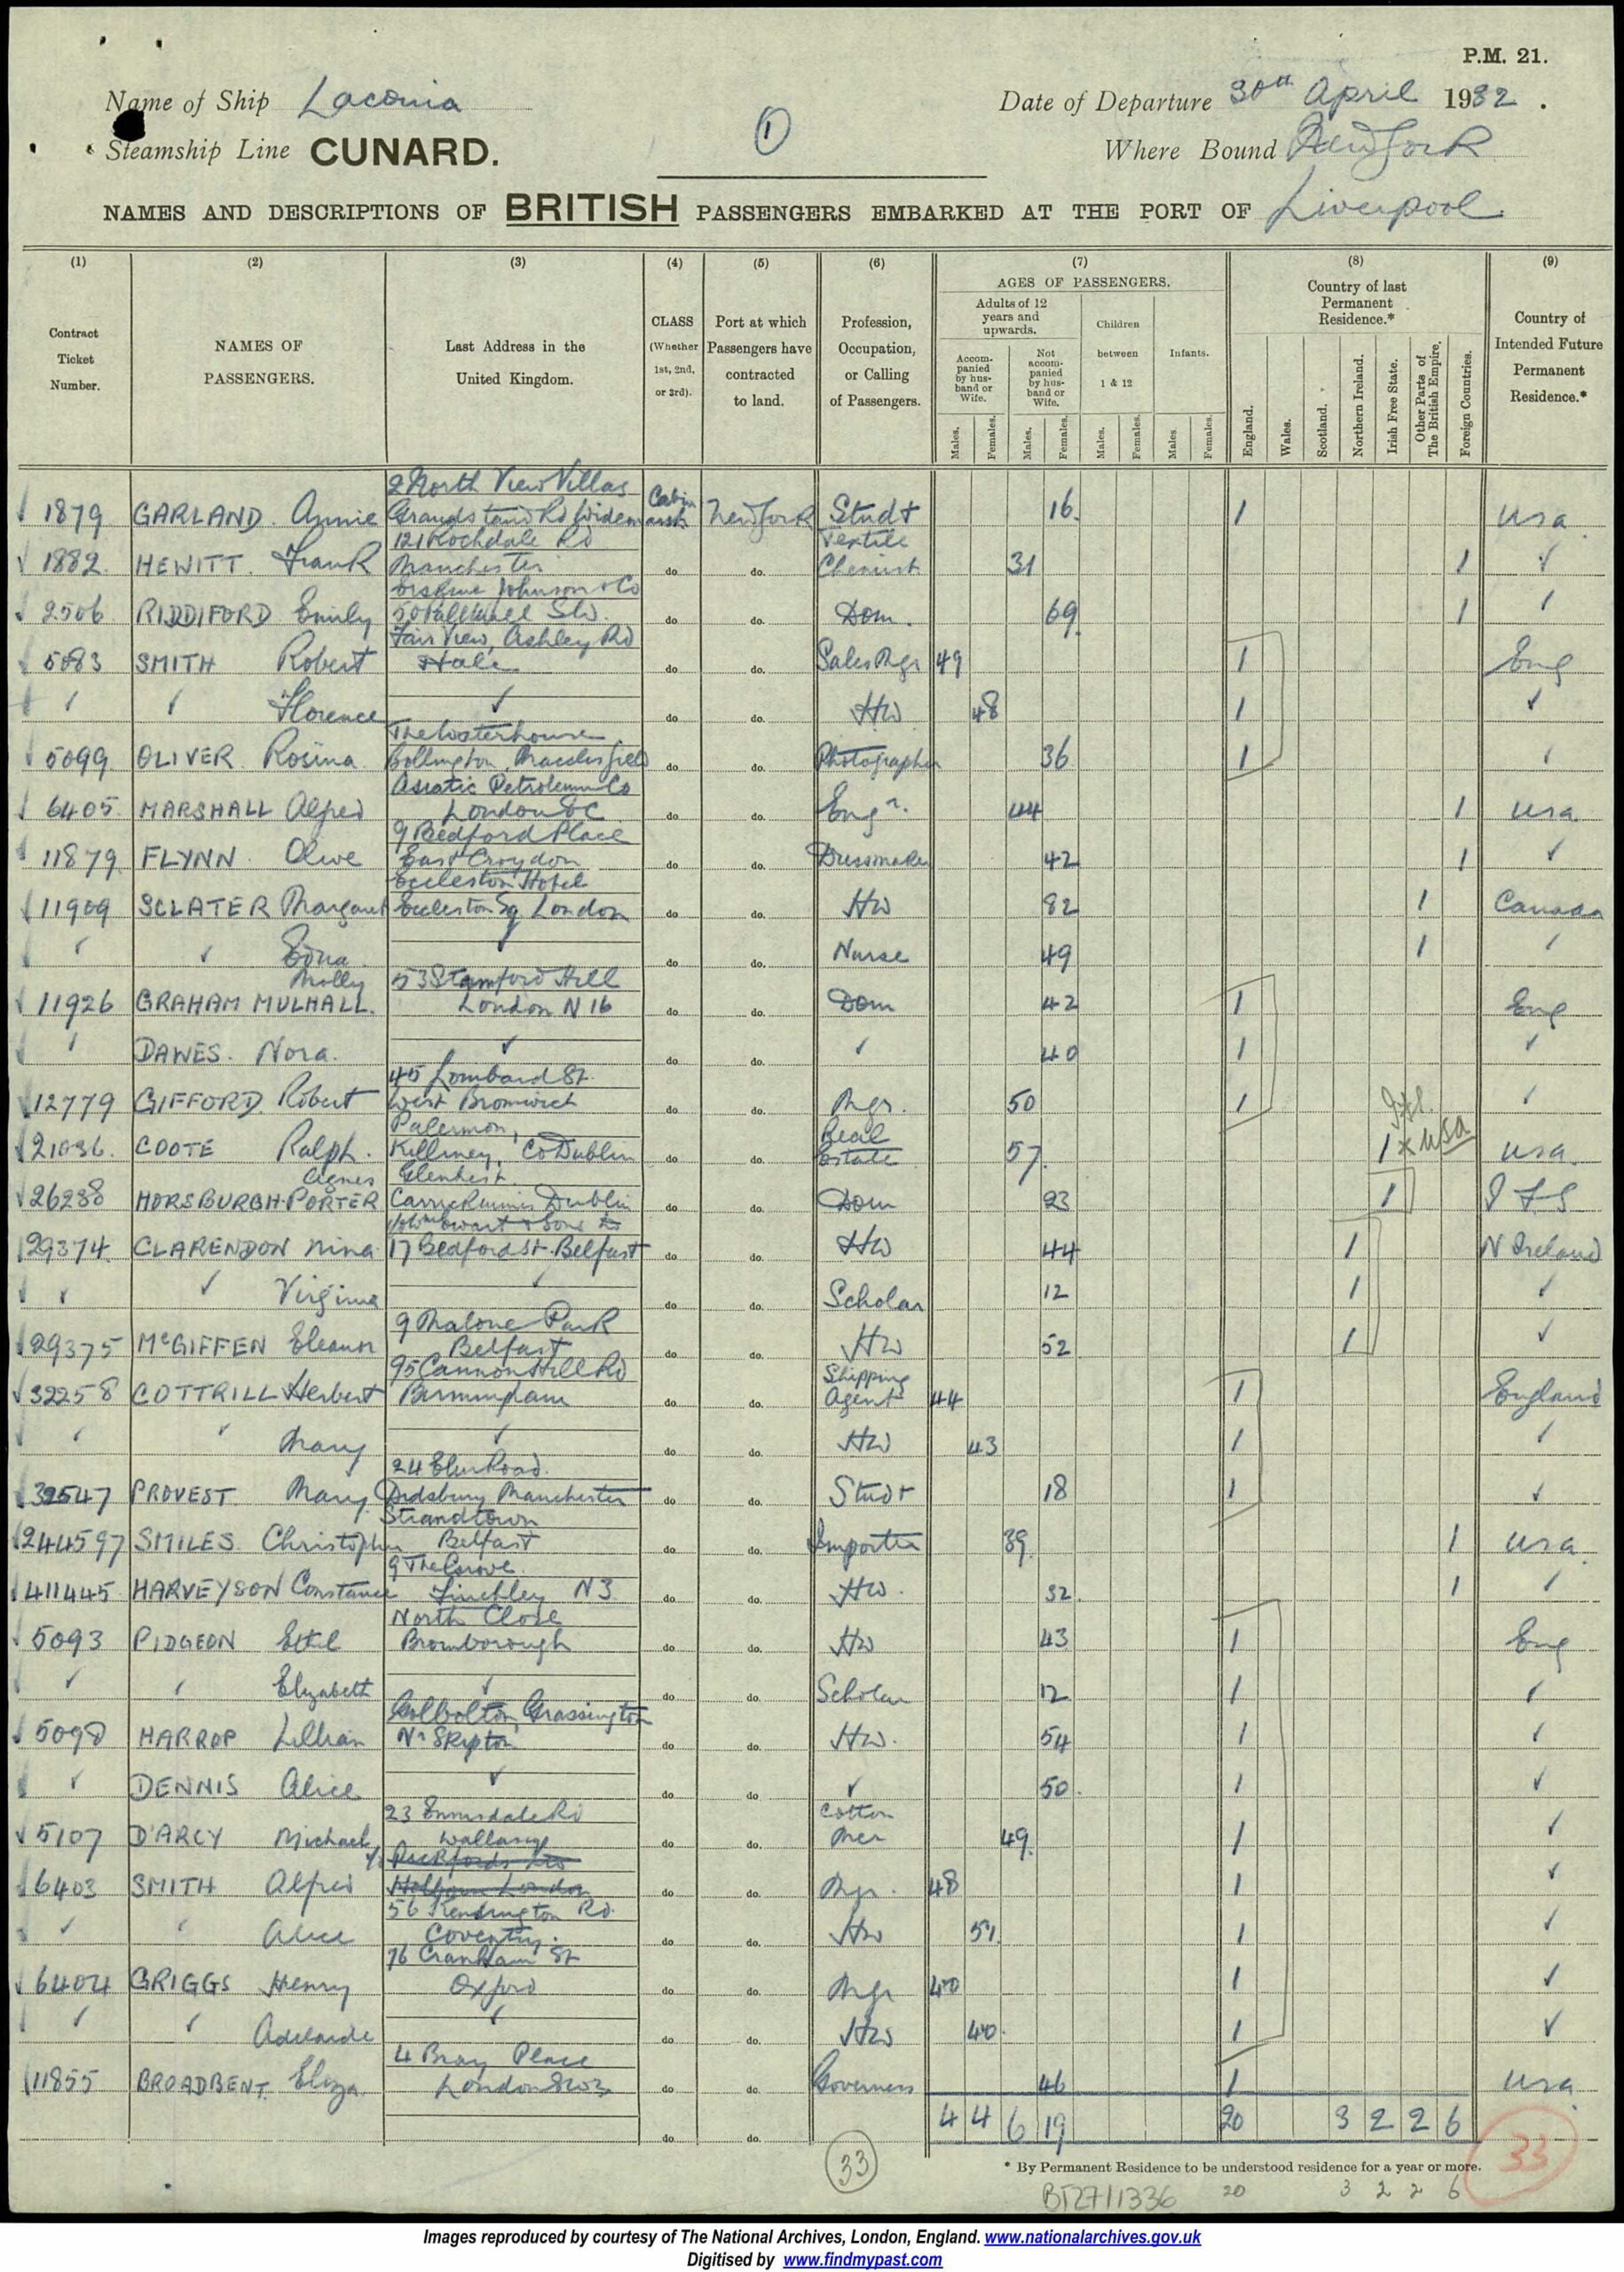 P.M. 21.
Name of Ship Laconia
Date of Departure 30th April 1932.
1
Steamship Line CUNARD.
Where Bound New York
NAMES AND DESCRIPTIONS OF BRITISH PASSENGERS EMBARKED AT THE PORT OF Liverpool
(1) (2) (3) (4) (5) (6) (7) (8) (9)
Contract Ticket Number.
NAMES OF PASSENGERS.
Last Address in the United Kingdom.
CLASS (Whether 1st, 2nd, or 3rd).
Port at which Passengers have contracted to land.
Profession, Occupation, or Calling of Passengers.
AGES OF PASSENGERS.
Adults of 12 years and upwards.
Accompanied by husband or Wife.
Not accompanied by husband or Wife.
Children between 1 & 12
Infants.
Males. Females. Males. Females. Males. Females. Males. Females.
Country of last Permanent Residence.*
England. Wales. Scotland. Northern Ireland. Irish Free State. Other Parts of The British Empire. Foreign Countries.
Country of Intended Future Permanent Residence.*
2 North View Villas
1879 GARLAND. Annie Grandstand Rd Cabin New York Studt 16. 1 USA
121 Rochdale Rd Textile
1882. HEWITT. Frank Manchester do do. Chemist 31 1 ✓
Erskine Johnson & Co
2506 RIDDIFORD Emily 50 Pall Mall SW. do do. Dom. 69. 1
Fair View, Ashley Rd
5083 SMITH Robert Hale do do. Sales Mgr 49 1 Eng
✓ Florence ✓ do do. HW 48 1 ✓
The Waterhouse
5099 OLIVER Rosina Bollington, Macclesfield do do. Photographer 36 1
Asiatic Petroleum Co
6405. MARSHALL Alfred London EC do do. Engr. 44 1 USA
9 Bedford Place
11879 FLYNN. Olive East Croydon do do. Dressmaker 42 1 ✓
Eccleston Hotel
11909 SCLATER Margaret Eccleston Sq London do do. HW 82 1 Canada
Edna ✓ do do. Nurse 49 1
Molly 53 Stamford Hill
11926 GRAHAM MULHALL. London N 16 do do. Dom 42 1 Eng
DAWES. Nora. ✓ do do. ✓ 40 1 ✓
45 Lombard St.
12779 GIFFORD Robert West Bromwich do do. Mgr. 50 1
Real I.F.S.
21036. COOTE Ralph. Killiney, Co Dublin do do. Estate 57. 1 x USA USA.
Agnes
26288 HORSBURGH-PORTER Dublin do do. Dom 23 1 I F S
29374 CLARENDON Nina 17 Bedford St. Belfast do do. HW 44 1 N Ireland
✓ Virginia ✓ do do. Scholar 12 1 ✓
9 Malone Park
29375 McGIFFEN Eleanor Belfast do do. HW 52 1 ✓
95 Cannon Hill Rd Shipping
32258 COTTRILL Herbert Birmingham do do. Agent 44 1 England
Mary ✓ do do. HW 43 1
24 Elm Road.
32547 PROVEST Mary Didsbury Manchester do do. Studt 18 1 ✓
Strandtown
244597 SMILES. Christopher Belfast do do. Importer 39. 1 USA
9 The Grove.
411445 HARVEYSON Constance Finchley N3. do do. HW. 32. 1
North Close
5093 PIDGEON Ethel Bromborough do do. HW 43 1 Eng
Elizabeth ✓ do do. Scholar 12 1 ✓
Grassington
5098 HARROP Lillian Nr Skipton do do. HW. 54 1 ✓
DENNIS Alice ✓ do do ✓ 50. 1 ✓
23 Rd Cotton
5107 D'ARCY Michael Wallasey do do. Mer 49. 1 ✓
c/o Pickfords Ltd
6403 SMITH Alfred Holborn London do do. Mgr. 48 1 ✓
56 Kensington Rd.
Alice Coventry. do do. HW 51. 1 ✓
76 Cranham St
6404 GRIGGS Henry Oxford do do. Mgr 40 1 ✓
Adelaide ✓ do do. HW 40. 1 ✓
4 Bray Place
11855 BROADBENT. Eliza. London SW3 do do. Governess 46 1 USA
do do.
4 4 6 19 20 3 2 2 6
33 33
* By Permanent Residence to be understood residence for a year or more.
BT27/1336 20 3 2 2 6
Images reproduced by courtesy of The National Archives, London, England. www.nationalarchives.gov.uk
Digitised by www.findmypast.com